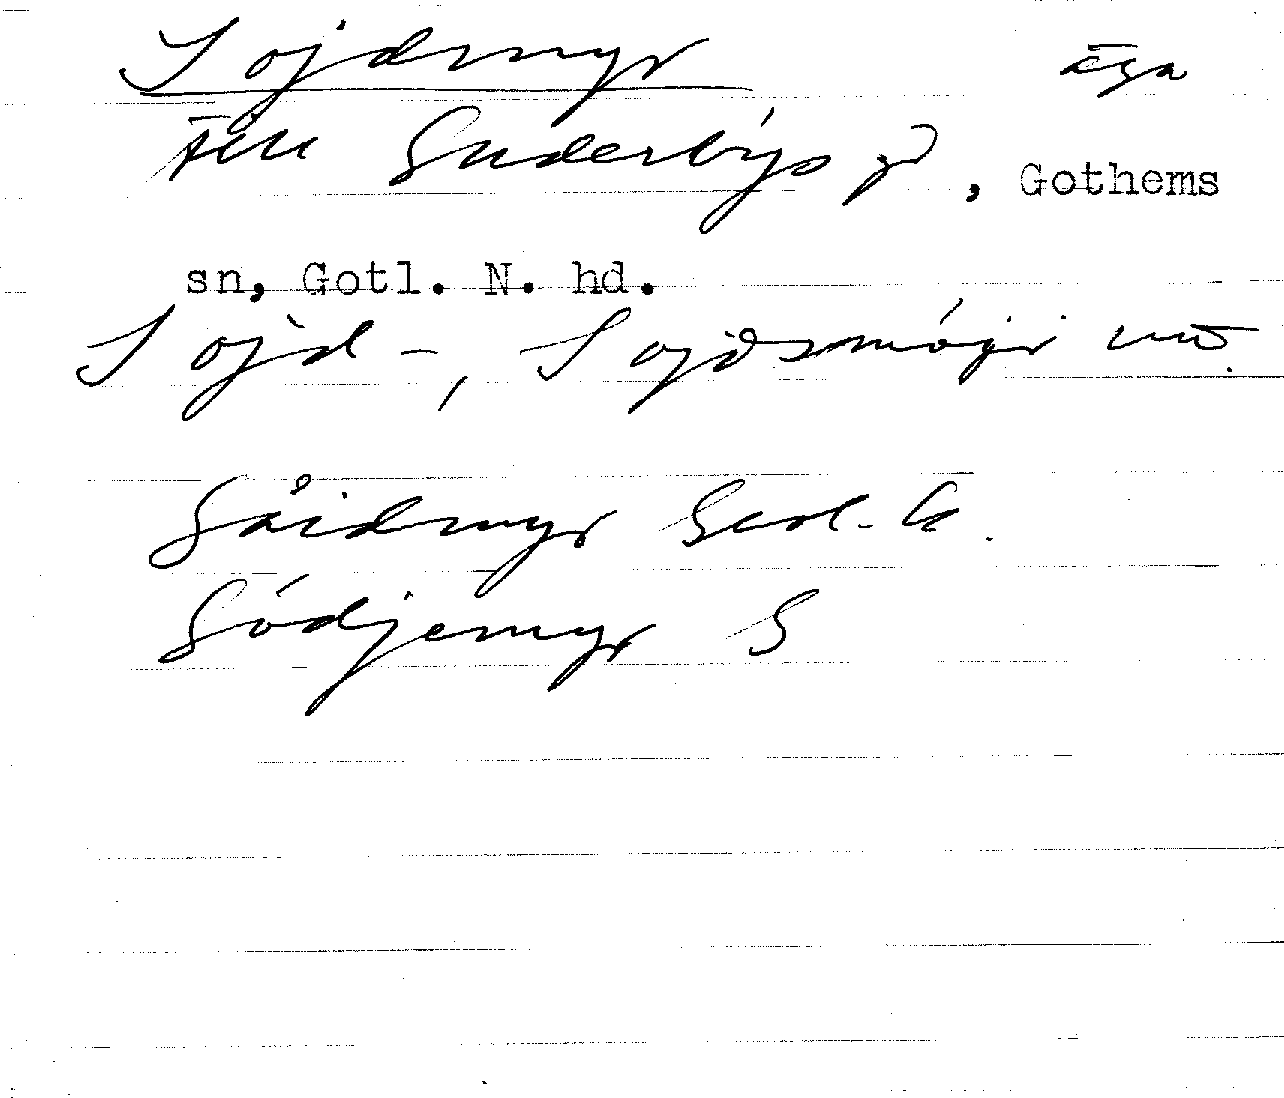 Sojdmyr äga
till Suderbys gd, Gothems
sn, Gotl. N. hd.
Sojd-, Sojdsmóјr
Såidmyr Geol. k.
Södjemyr S